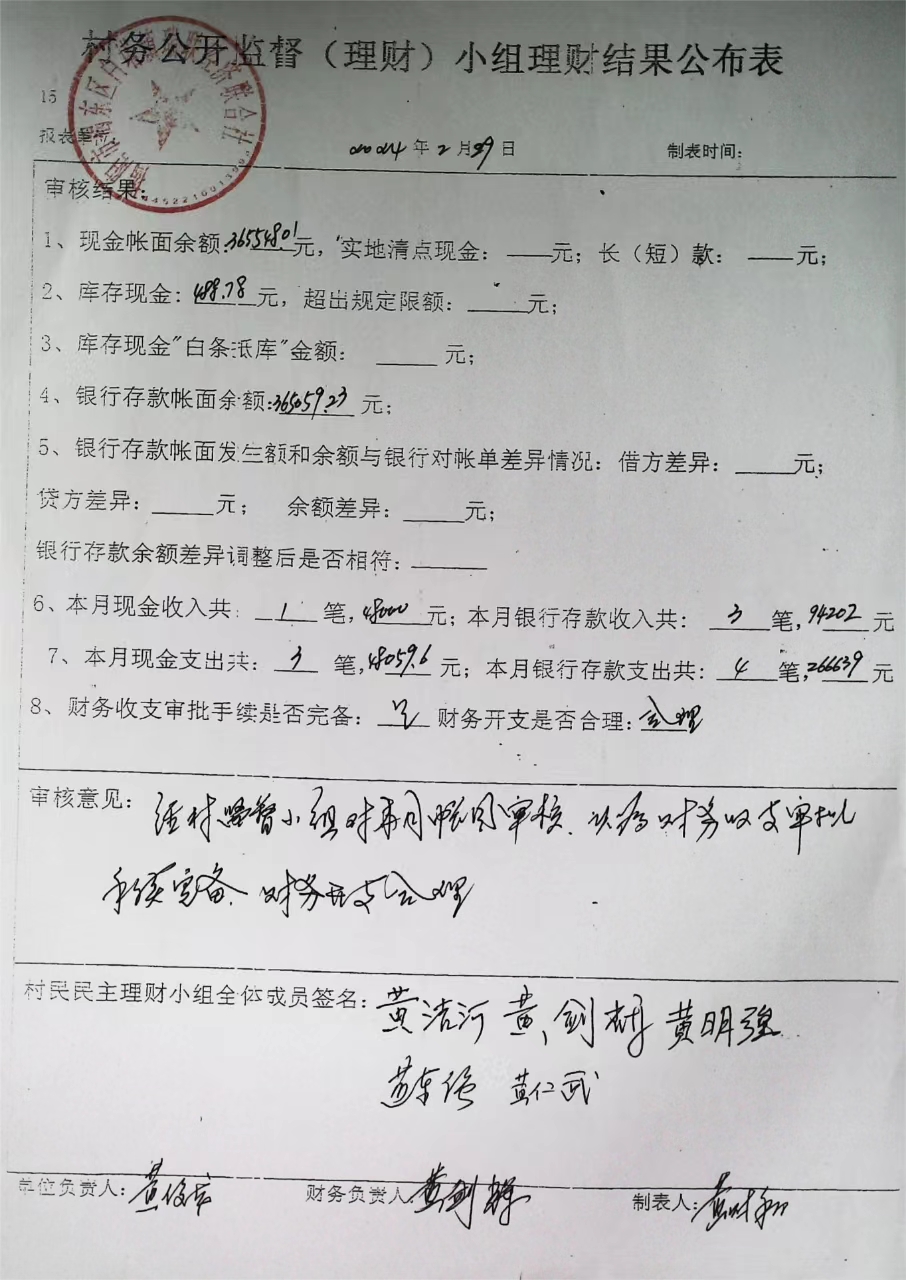 村务公开监督（理财）小组理财结果公布表
15
报表单位:
2024 年 2 月 29 日 制表时间:
审核结果:
1、现金帐面余额:365548.01元，实地清点现金: —元；长（短）款: —元；
2、库存现金: 488.78元，超出规定限额: ____元；
3、库存现金"白条抵库"金额: ____元；
4、银行存款帐面余额:365059.23 元；
5、银行存款帐面发生额和余额与银行对帐单差异情况: 借方差异: ____元；
贷方差异: ____元； 余额差异: ____元；
银行存款余额差异调整后是否相符: ____
6、本月现金收入共: 1 笔,48000 元；本月银行存款收入共: 3 笔,94202 元
7、本月现金支出共: 3 笔,48059.6 元；本月银行存款支出共: 4 笔,266639 元
8、财务收支审批手续是否完备: 是 财务开支是否合理: 合理
审核意见: 经村监督小组对本月帐目审核、认为财务收支审批
手续完备、财务开支合理
村民民主理财小组全体成员签名: 黄洁河 黄剑 黄明强
苏东强 黄仁武
单位负责人: 黄俊 财务负责人 黄剑 制表人: 黄
445221001399